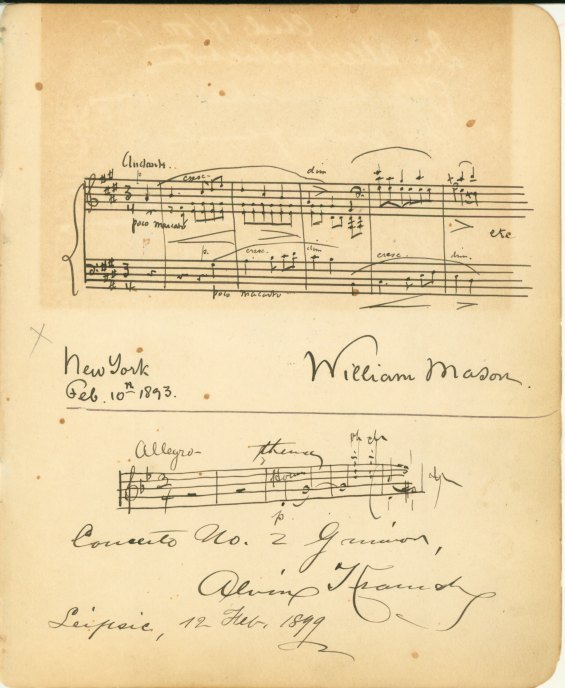 Andante.
p
cresc.
dim
poco marcato
etc
p.
cresc.
dim
cresc.
dim.
poco marcato
New York
Feb. 10th 1893.
William Mason.
Allegro
3/4
p
Concerto No. 2 G minor,
Alvin
Leipsic, 12 Feb. 1899